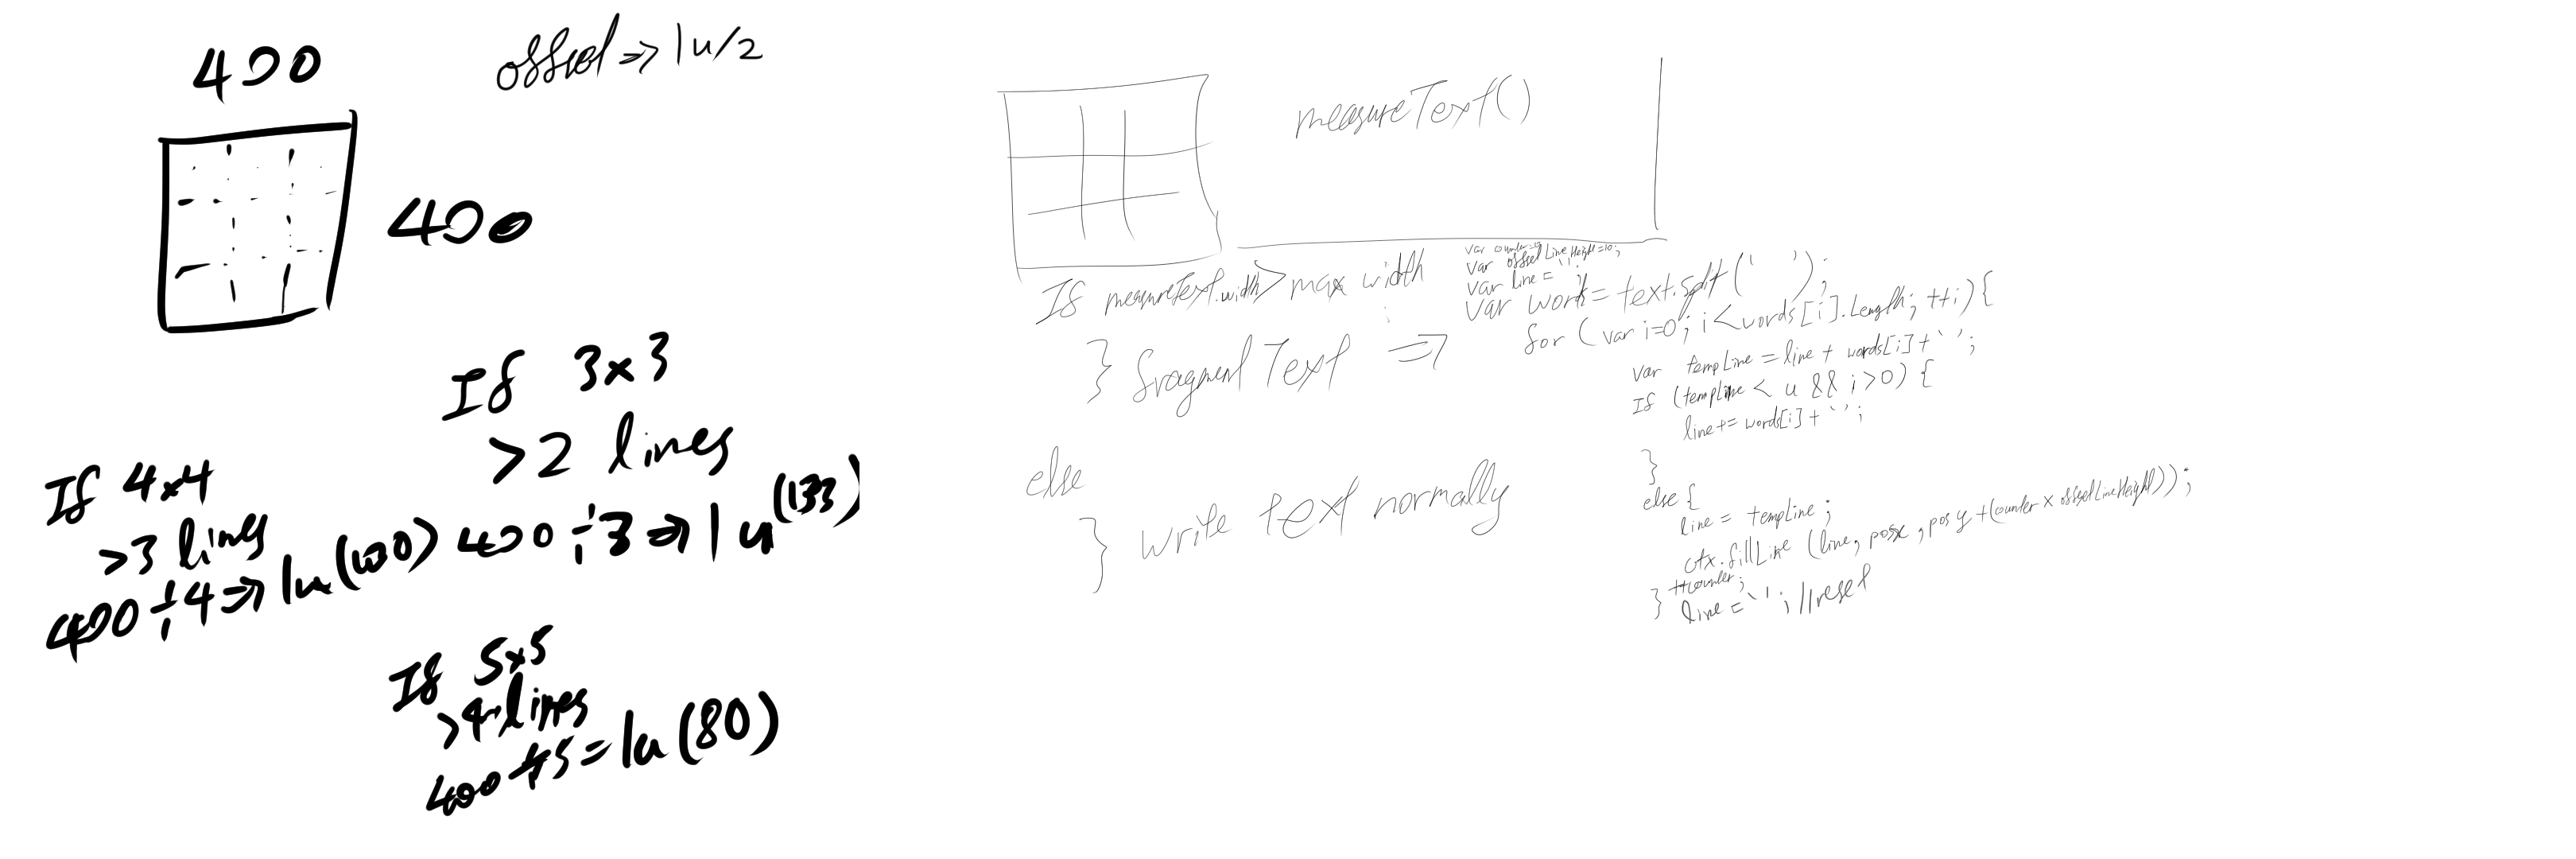 400
offset => 1u/2
400
If 3x3
>2 lines
400÷3 => 1u(133)
If 4x4
>3 lines
400÷4 => 1u(100)
If 5x5
>4 lines
400÷5 = 1u(80)
measureText()
If measureText.width > max width
} fragment Text =>
else
} write text normally
var counter=0;
var offsetLineHeight=10;
var line = ' ';
var words = text.split(' ');
for (var i=0; i<words[i].Length; ++i) {
var tempLine = line + words[i] + ' ';
If (tempLine < u && i>0) {
line += words[i] + ' ';
}
else {
line = tempLine;
ctx.fillLine (line, posx, posy +(counter x offsetLineHeight));
++counter;
} line = ' '; //reset